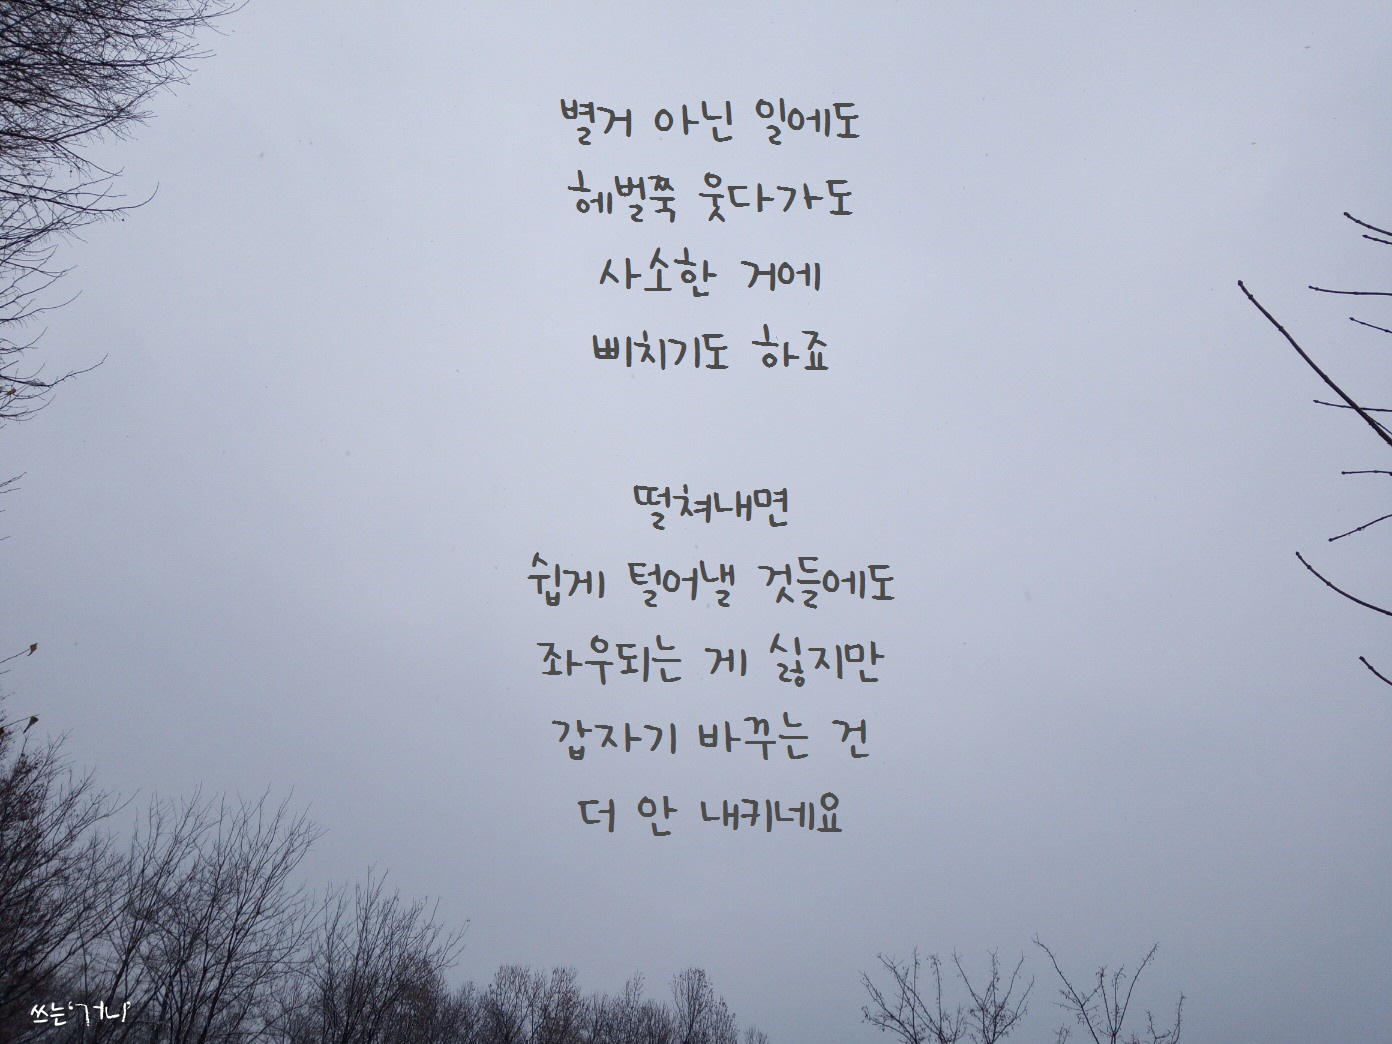 별거 아닌 일에도
헤벌쭉 웃다가도
사소한 거에
삐치기도 하죠
떨쳐내면
쉽게 털어낼 것들에도
좌우되는 게 싫지만
갑자기 바꾸는 건
더 안 내키네요
쓰는'거니'